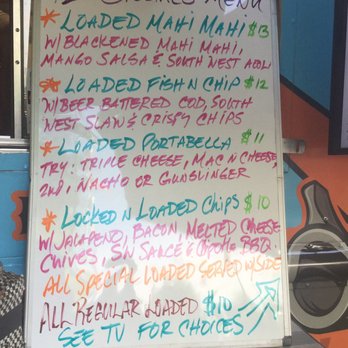 Specials Menu
* Loaded Mahi Mahi $13
w/ Blackened Mahi Mahi,
Mango Salsa & South West Aioli
* Loaded Fish n Chip $12
w/ Beer Battered Cod, South
West Slaw & Crispy Chips
* Loaded Portabella $11
Try: Triple Cheese, Mac n Cheese,
2nd, Nacho or Gunslinger
* Locked n Loaded Chips $10
w/ Jalapeno, Bacon, Melted Cheese
Chives, SW Sauce & Chipotle BBQ
All Special Loaded Served w/ Side
All Regular Loaded $10
See TV for Choices